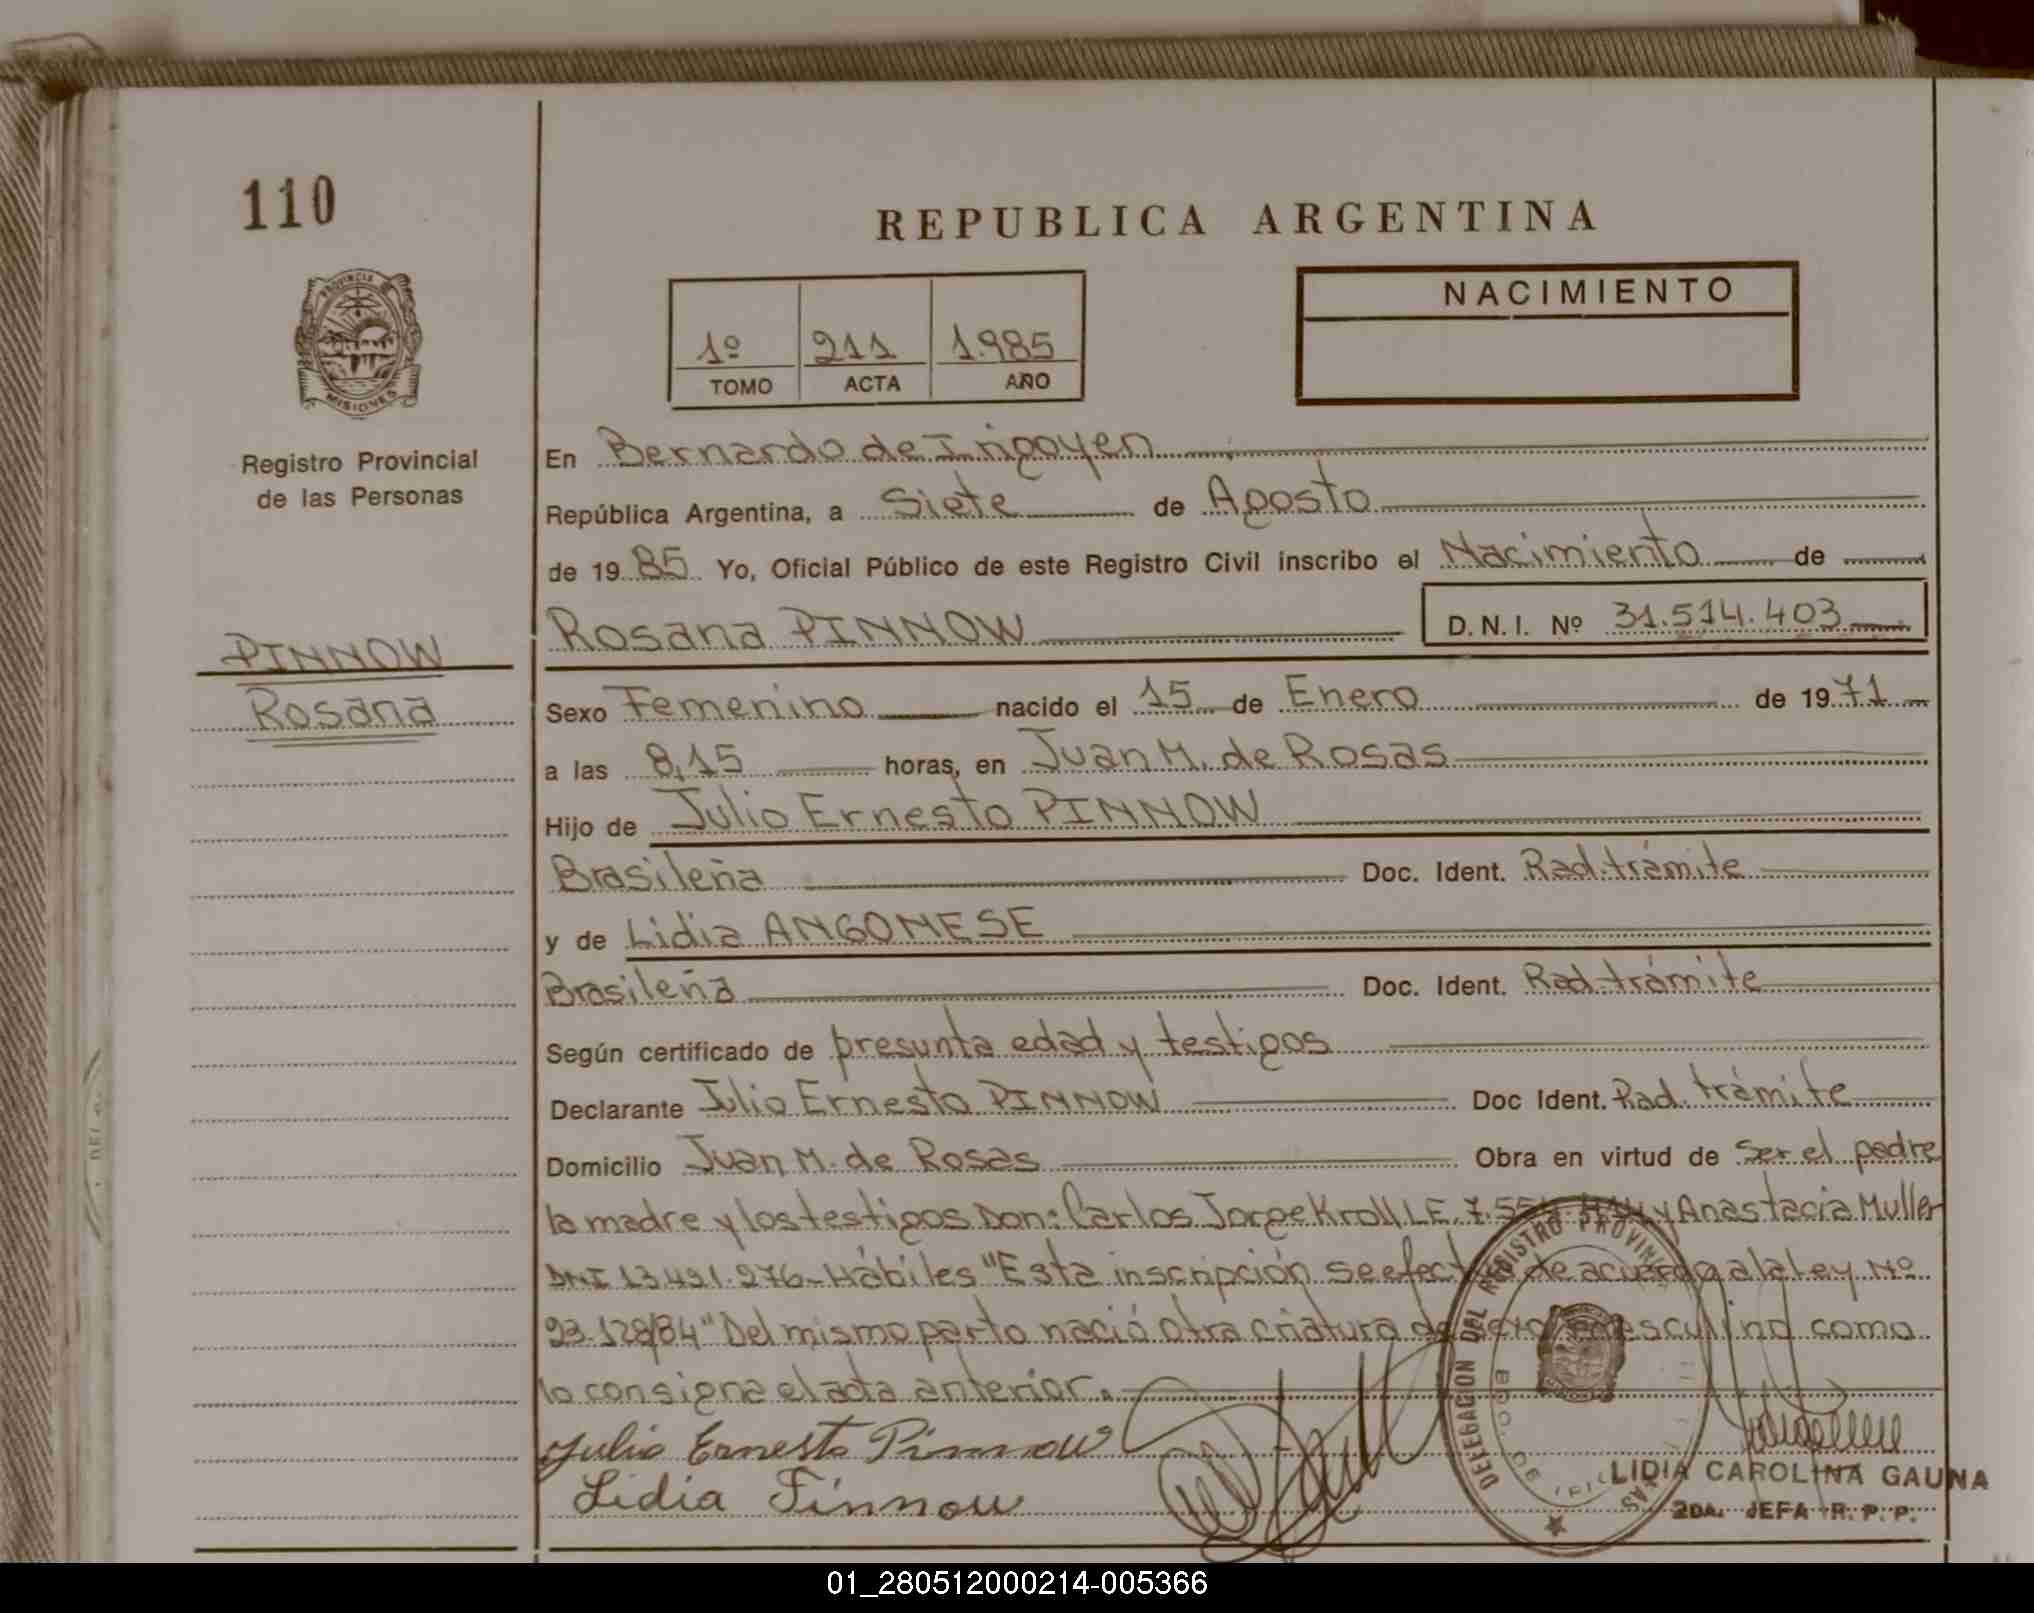 110
REPUBLICA ARGENTINA
PROVINCIA DE
MISIONES
NACIMIENTO
1º 211 1.985
TOMO ACTA AÑO
Registro Provincial
de las Personas
En Bernardo de Irigoyen
República Argentina, a Siete de Agosto
de 1985 Yo, Oficial Público de este Registro Civil inscribo el Nacimiento de
Rosana PINNOW D.N.I. Nº 31.514.403
PINNOW
Rosana
Sexo Femenino nacido el 15 de Enero de 1971
a las 8,15 horas, en Juan M. de Rosas
Hijo de Julio Ernesto PINNOW
Brasileña Doc. Ident. Rad. trámite
y de Lidia ANGONESE
Brasileña Doc. Ident. Rad. trámite
Según certificado de presunta edad y testigos
Declarante Julio Ernesto PINNOW Doc Ident. Rad. trámite
Domicilio Juan M. de Rosas Obra en virtud de ser el padre
la madre y los testigos Don: Carlos Jorge Kroll LE. 7.55 y Anastacia Muller
DNI 13.491.276- Hábiles "Esta inscripción se efectúa de acuerdo a la Ley Nº
23.128/84" Del mismo parto nació otra criatura de sexo masculino como
lo consigna el acta anterior.
Julio Ernesto Pinnow
Lidia Pinnow
DELEGACION DEL REGISTRO PROVINCIAL
LIDIA CAROLINA GAUNA
2DA. JEFA R. P. P.
01_280512000214-005366